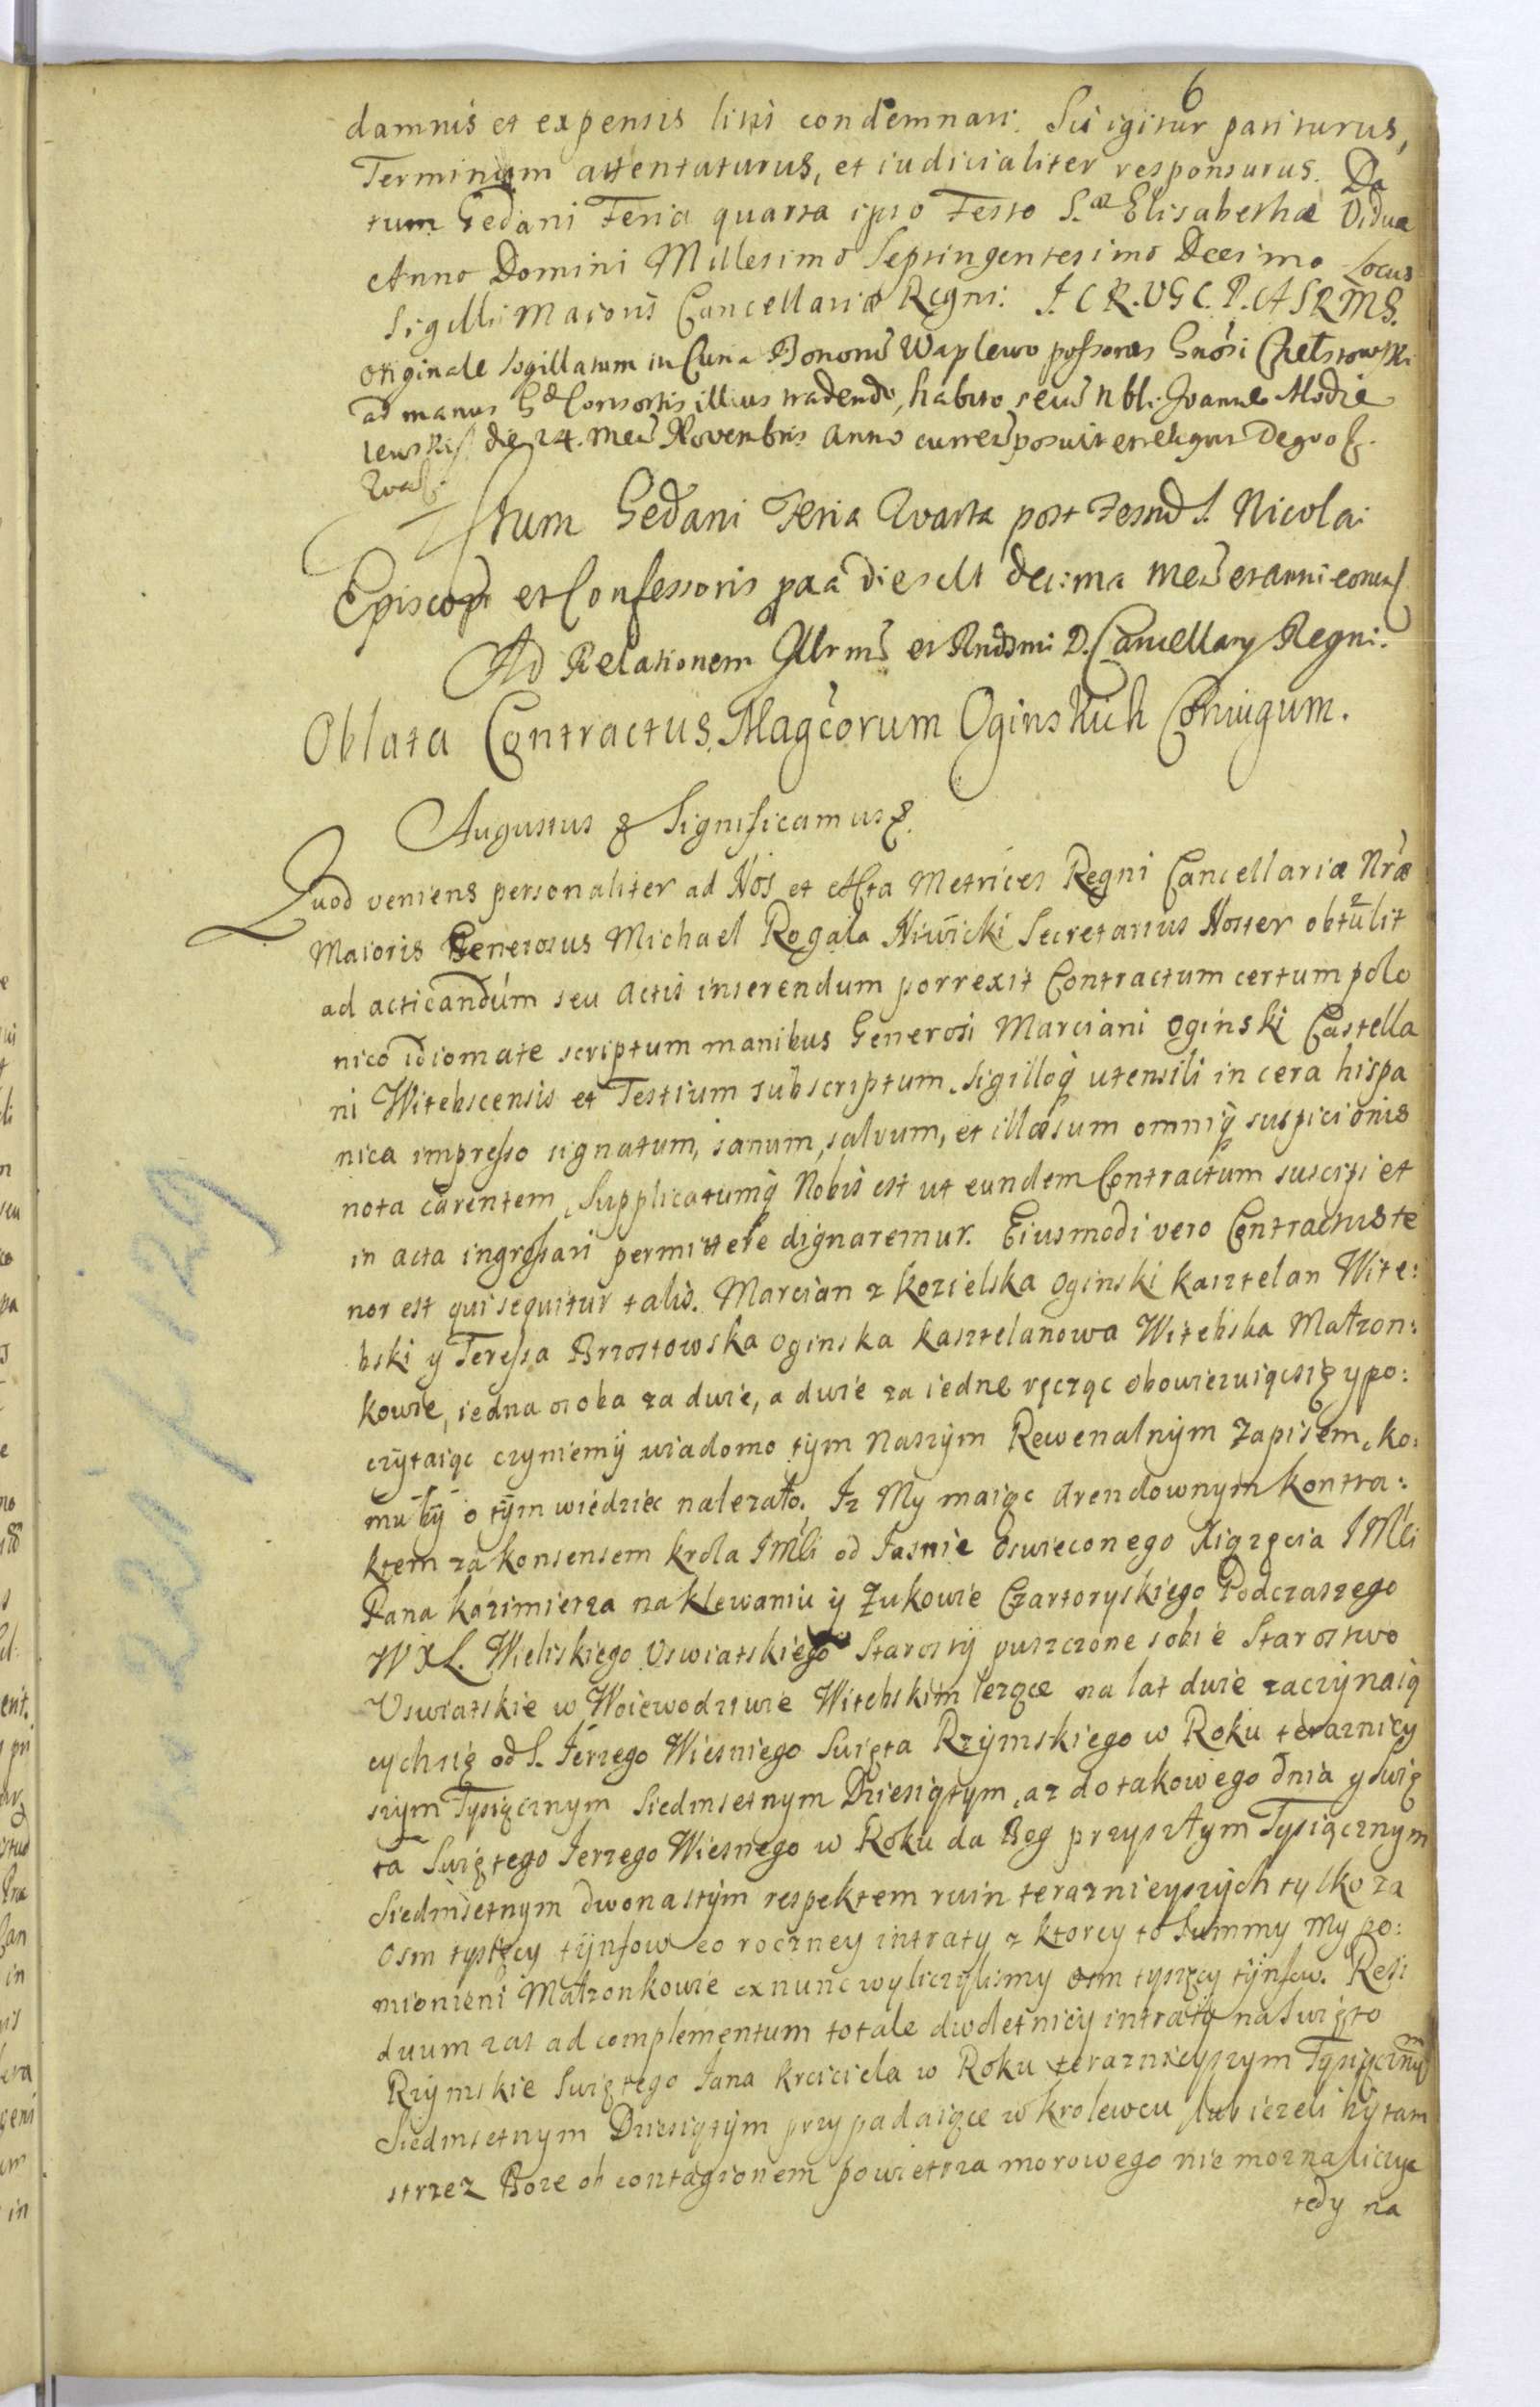 6
damnis et expensis litis condemnari. Sis igitur pariturus,
Terminum attentaturus, et iudicialiter responsurus. Da
tum Gedani Feria quarta ipso Festo S.æ Elisabethæ Viduæ
Anno Domini Millesimo Septingentesimo Decimo Locus
Sigilli Maioris Cancellariæ Regni. I. C R. V G C. P. A S R M S.
Originale sigillatum in Curia Bonorum Waplewo possoris Gnosi Chełstowski
ad manus Gd Consortis illius tradendo, habito secum Nbli Joanne Modze
lewski die 24. Novembris Anno posuit et reliquit De quo
Actum Gedani Feria Quarta post Festum S. Nicolai
Episcopi et Confessoris die decima et anni eorund
Ad Relationem Illrmi et Rndsmi D. Cancellary Regni.
Oblata Contractus Magcorum Oginskich Coniugum.
Augustus & Significamus &.
Quod veniens personaliter ad Nos et Acta Metrices Regni Cancellariæ Nræ
Maioris Generosus Michael Rogala Niwicki Secretarius Noster obtulit
ad acticandum seu actis inserendum porrexit Contractum certum polo
nico idiomate scriptum manibus Generosi Marciani Oginski Castella
ni Witebscensis et Testium subscriptum, sigilloq utensili in cera hispa
nica impresso signatum, sanum, salvum, et illæsum omniq suspicionis
nota carentem, Supplicatumq Nobis est ut eundem Contractum suscipi et
in acta ingrossari permittere dignaremur. Eiusmodi vero Contractus te
nor est qui sequitur talis. Marcian z Kozielska Oginski Kasztelan Wite:
bski y Teressa Brzostowska Oginska Kasztelanowa Witebska Małzon:
kowie, iedna osoba za dwie, a dwie za iedne ręcząc obowiezuiąc się y po:
czytaiąc czyniemy wiadomo tym Naszym Rewenalnym Zapisem, ko:
mu by o tym wiedziec nalezało, Iz My maiąc Arendownym Kontra:
ktem za konsensem krola IMci od Jasnie Oswieconego Xiązęcia IMci
Pana Kazimierza na Klewaniu y Zukowie Czartoryskiego Podczaszego
W X L. Wieliskiego Uswiatskiego Starosty puszczone sobie Starostwo
Uswiatskie w Woiewodztwie Witebskim lezące na lat dwie zaczynaią
cych się od S. Jerzego Wiesniego Swięta Rzymskiego w Roku terazniey
szym Tysiącznym Siedmsetnym Dziesiątym, az do takowego dnia y Swię
ta Swiętego Jerzego Wiesnego w Roku da Bog przyszłym Tysiącznym
Siedmsetnym dwonastym respektem ruin teraznieyszych tylko za
osm tysięcy tynfow co roczney intraty z ktorey to Summy My po:
mionieni Małzonkowie ex nunc wyliczylismy osm tysięcy tynfow. Resi
duum zas ad complementum totale dwoletniey intraty na Swięto
Rzymskie Swiętego Jana Krciciela w Roku teraznieyszym Tysiącznym
Siedmsetnym Dziesiątym przypadaiące w Krolewcu lub iezeli by tam
strzez Boze ob contagionem powietrza morowego nie mozna liczyc
tedy na